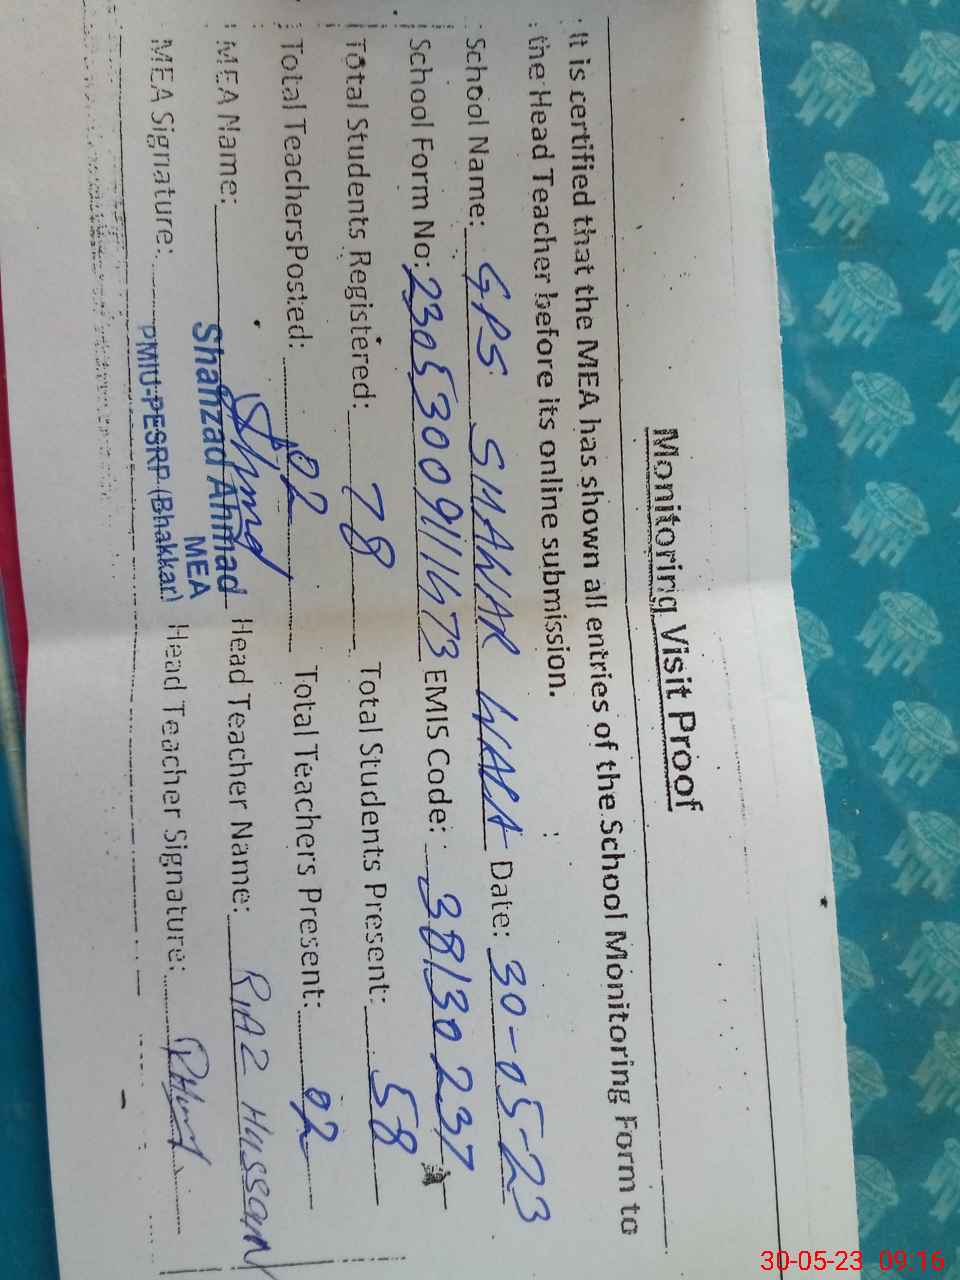 Monitoring Visit Proof
It is certified that the MEA has shown all entries of the School Monitoring Form to
the Head Teacher before its online submission.
School Name: GPS SHAHAR WALA Date: 30-05-23
School Form No: 2305300911473 EMIS Code: 38130237
Total Students Registered: 78 Total Students Present: 58
Total TeachersPosted: 02 Total Teachers Present: 02
MEA Name: Shahzad Ahmad Head Teacher Name: RIAZ HUSSAIN
MEA
MEA Signature: PMIU-PESRP (Bhakkar) Head Teacher Signature:
30-05-23 09:16